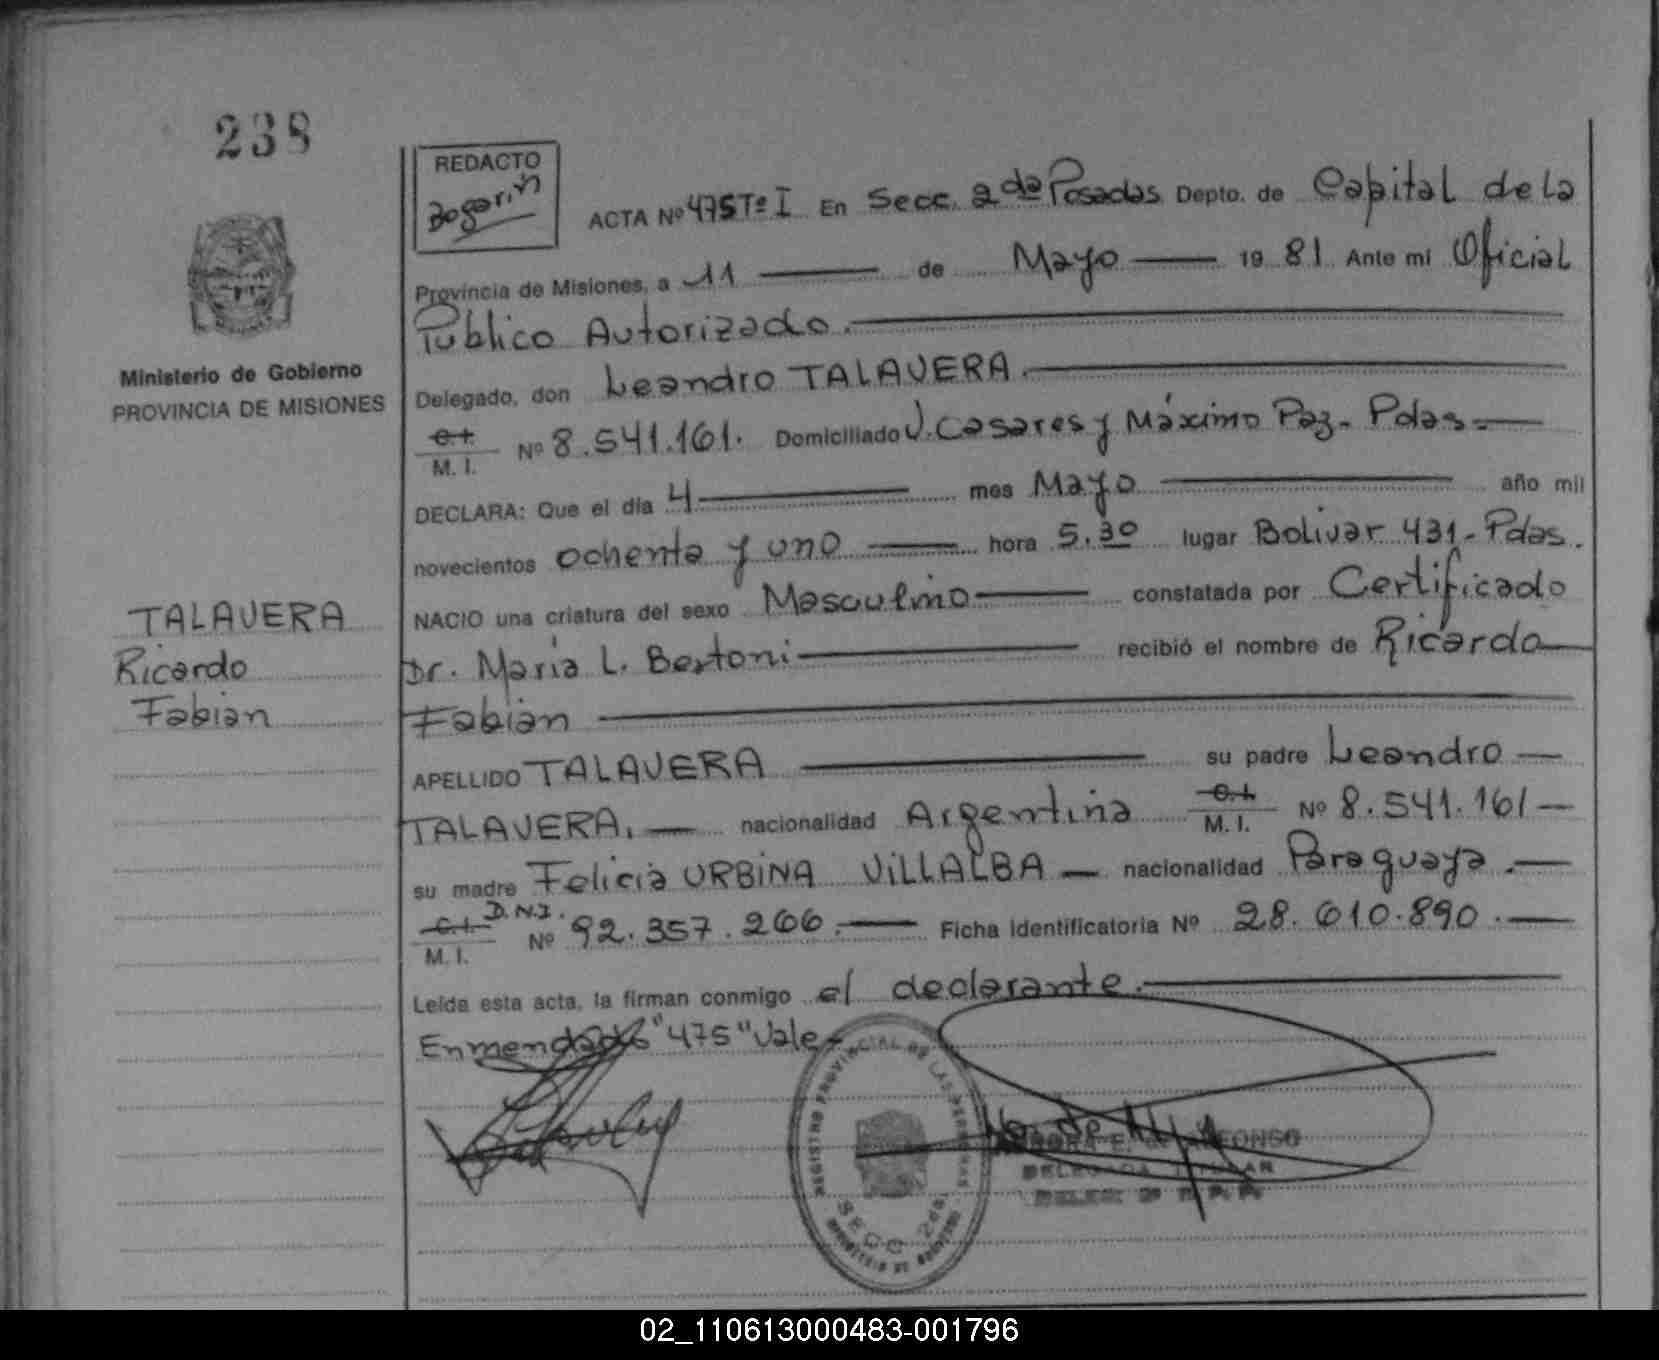 238
REDACTO
Bogarin
ACTA Nº 475 Tº I En Secc. 2da Posadas Depto. de Capital de la
Provincia de Misiones, a 11 de Mayo 1981 Ante mi Oficial
Público Autorizado.
Ministerio de Gobierno
PROVINCIA DE MISIONES
Delegado, don Leandro TALAVERA.
C.I.
M. I. Nº 8.541.161. Domiciliado J. Casares y Máximo Paz - Pdas -
DECLARA: Que el día 4 mes Mayo año mil
novecientos ochenta y uno hora 5.30 lugar Bolivar 431 - Pdas.
NACIO una criatura del sexo Masculino constatada por Certificado
Dr. Maria L. Bertoni recibió el nombre de Ricardo
Fabian
TALAVERA
Ricardo
Fabian
APELLIDO TALAVERA su padre Leandro
TALAVERA. nacionalidad Argentina C.I.
M. I. Nº 8.541.161
su madre Felicia URBINA VILLALBA nacionalidad Paraguaya.
C.I. D.N.I.
M. I. Nº 92.357.266. Ficha Identificatoria Nº 28.610.890.
Leída esta acta, la firman conmigo el declarante.
Enmendado "475" Vale -
REGISTRO PROVINCIAL DE LAS PERSONAS
SECC 2da
MINISTERIO DE GOBIERNO
DELEGADA TITULAR
02_110613000483-001796